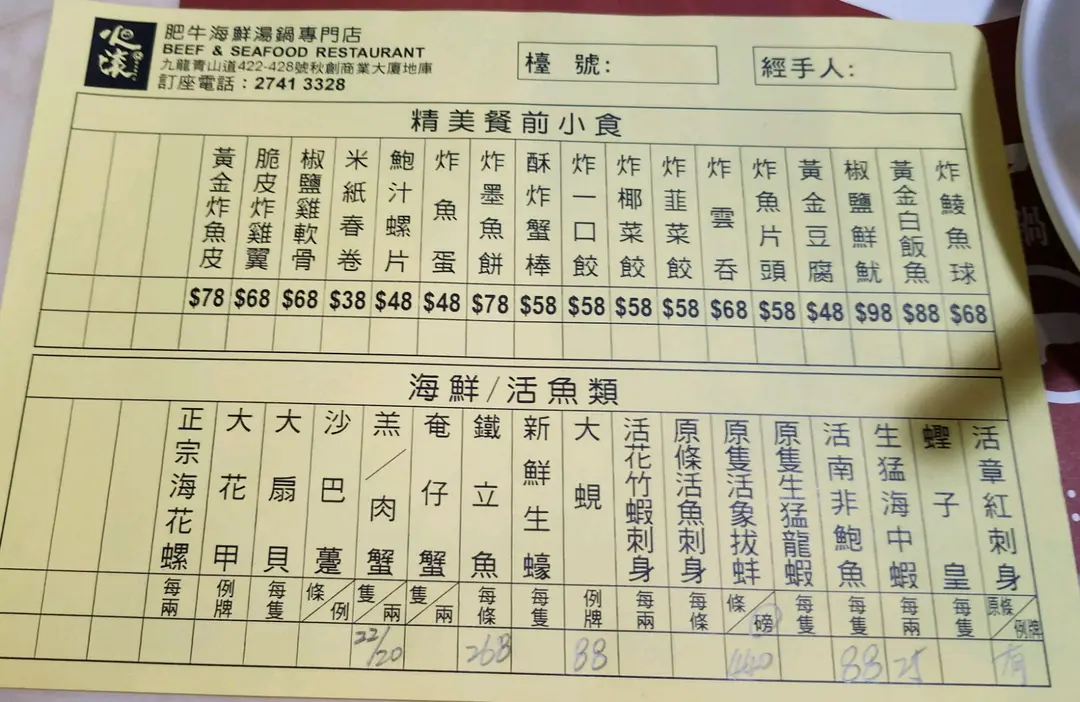 火滾
肥牛海鮮湯鍋專門店
BEEF & SEAFOOD RESTAURANT
九龍青山道422-428號秋創商業大廈地庫
訂座電話：2741 3328
檯 號：
經手人：
精美餐前小食
炸鯪魚球
黃金白飯魚
椒鹽鮮魷
黃金豆腐
炸魚片頭
炸雲吞
炸韮菜餃
炸椰菜餃
炸一口餃
酥炸蟹棒
炸墨魚餅
炸魚蛋
鮑汁螺片
米紙春卷
椒鹽雞軟骨
脆皮炸雞翼
黃金炸魚皮
$78 $68 $68 $38 $48 $48 $78 $58 $58 $58 $58 $68 $58 $48 $98 $88 $68
海鮮/活魚類
活章紅刺身
蟶子皇
生猛海中蝦
活南非鮑魚
原隻生猛龍蝦
原隻活象拔蚌
原條活魚刺身
活花竹蝦刺身
大蜆
新鮮生蠔
鐵立魚
奄仔蟹
羔/肉蟹
沙巴躉
大扇貝
大花甲
正宗海花螺
每兩 例牌 每隻 條/例 隻/兩 隻/兩 每條 每隻 例牌 每兩 每條 條/磅 每隻 每隻 每兩 每隻 原條/例牌
22/20 268 88 440 88 有